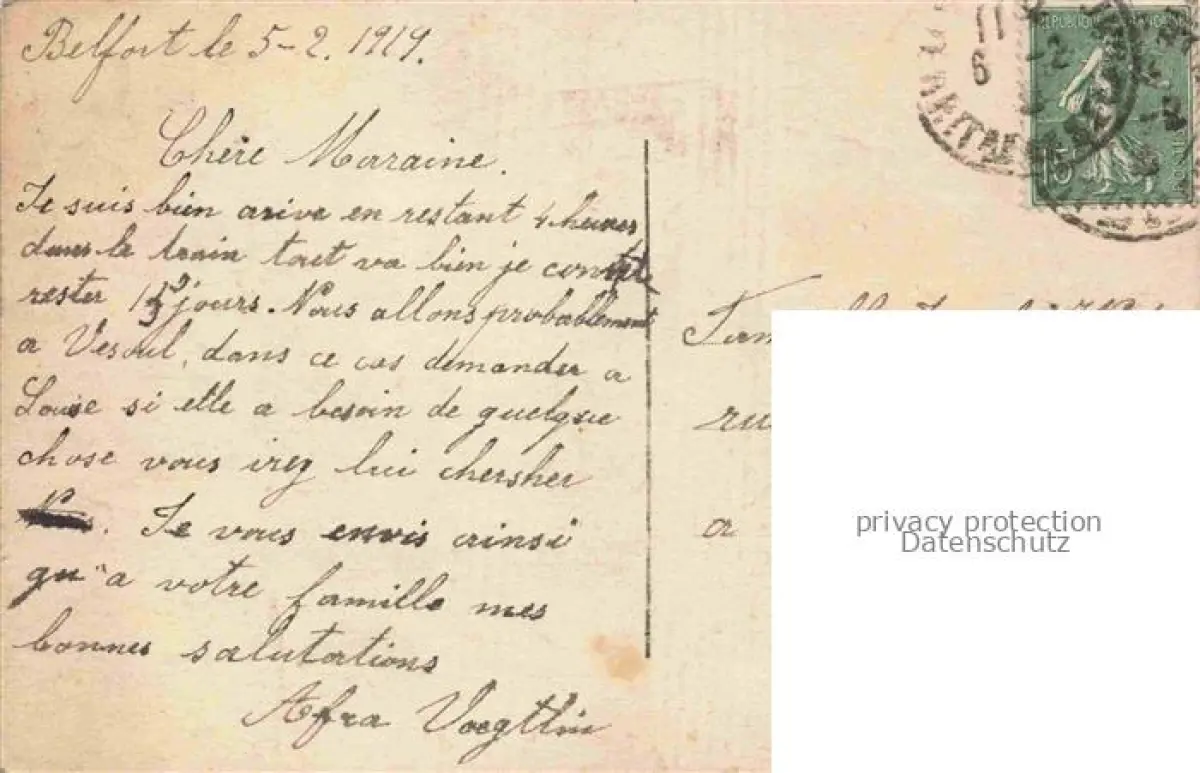 Belfort le 5-2. 1919.
Chère Marraine.
Je suis bien arive en restant 4 heures
dans le train tout va bien je compte
rester jours. Nous allons probablement
a Vesoul, dans ce cas demander a
Louise si elle a besoin de quelque
chose vous irez lui chersher
. Je vous envis ainsi
qu'a votre famille mes
bonnes salutations
Afra Voegtlin
15
ru
a
privacy protection
Datenschutz